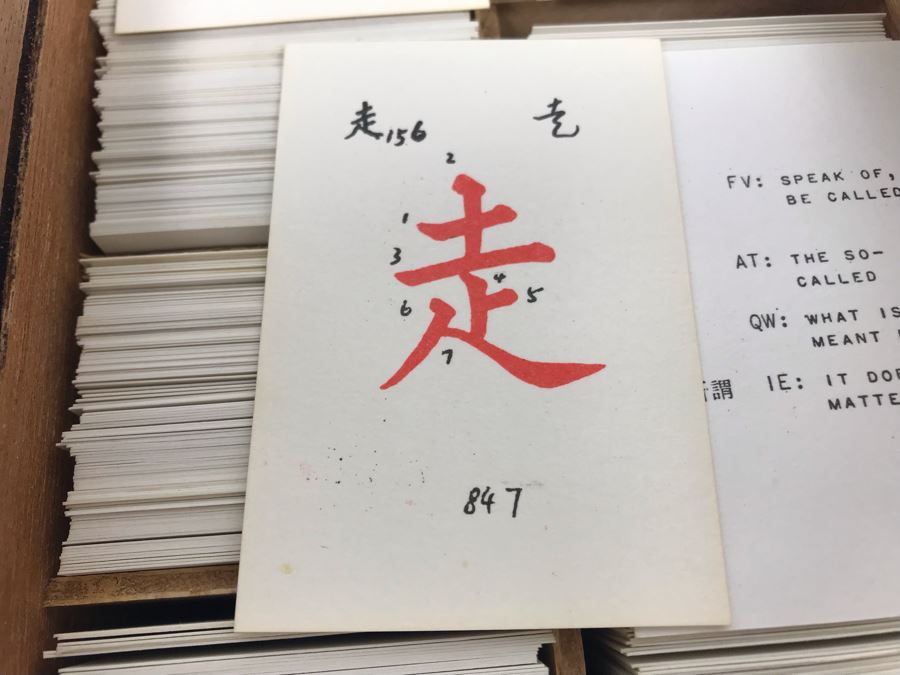 走156 赱
2
走
1
3
4
5
6
7
847
FV: SPEAK OF,
BE CALLED
AT: THE SO-
CALLED
QW: WHAT IS
MEANT
謂 IE: IT DOE
MATTE